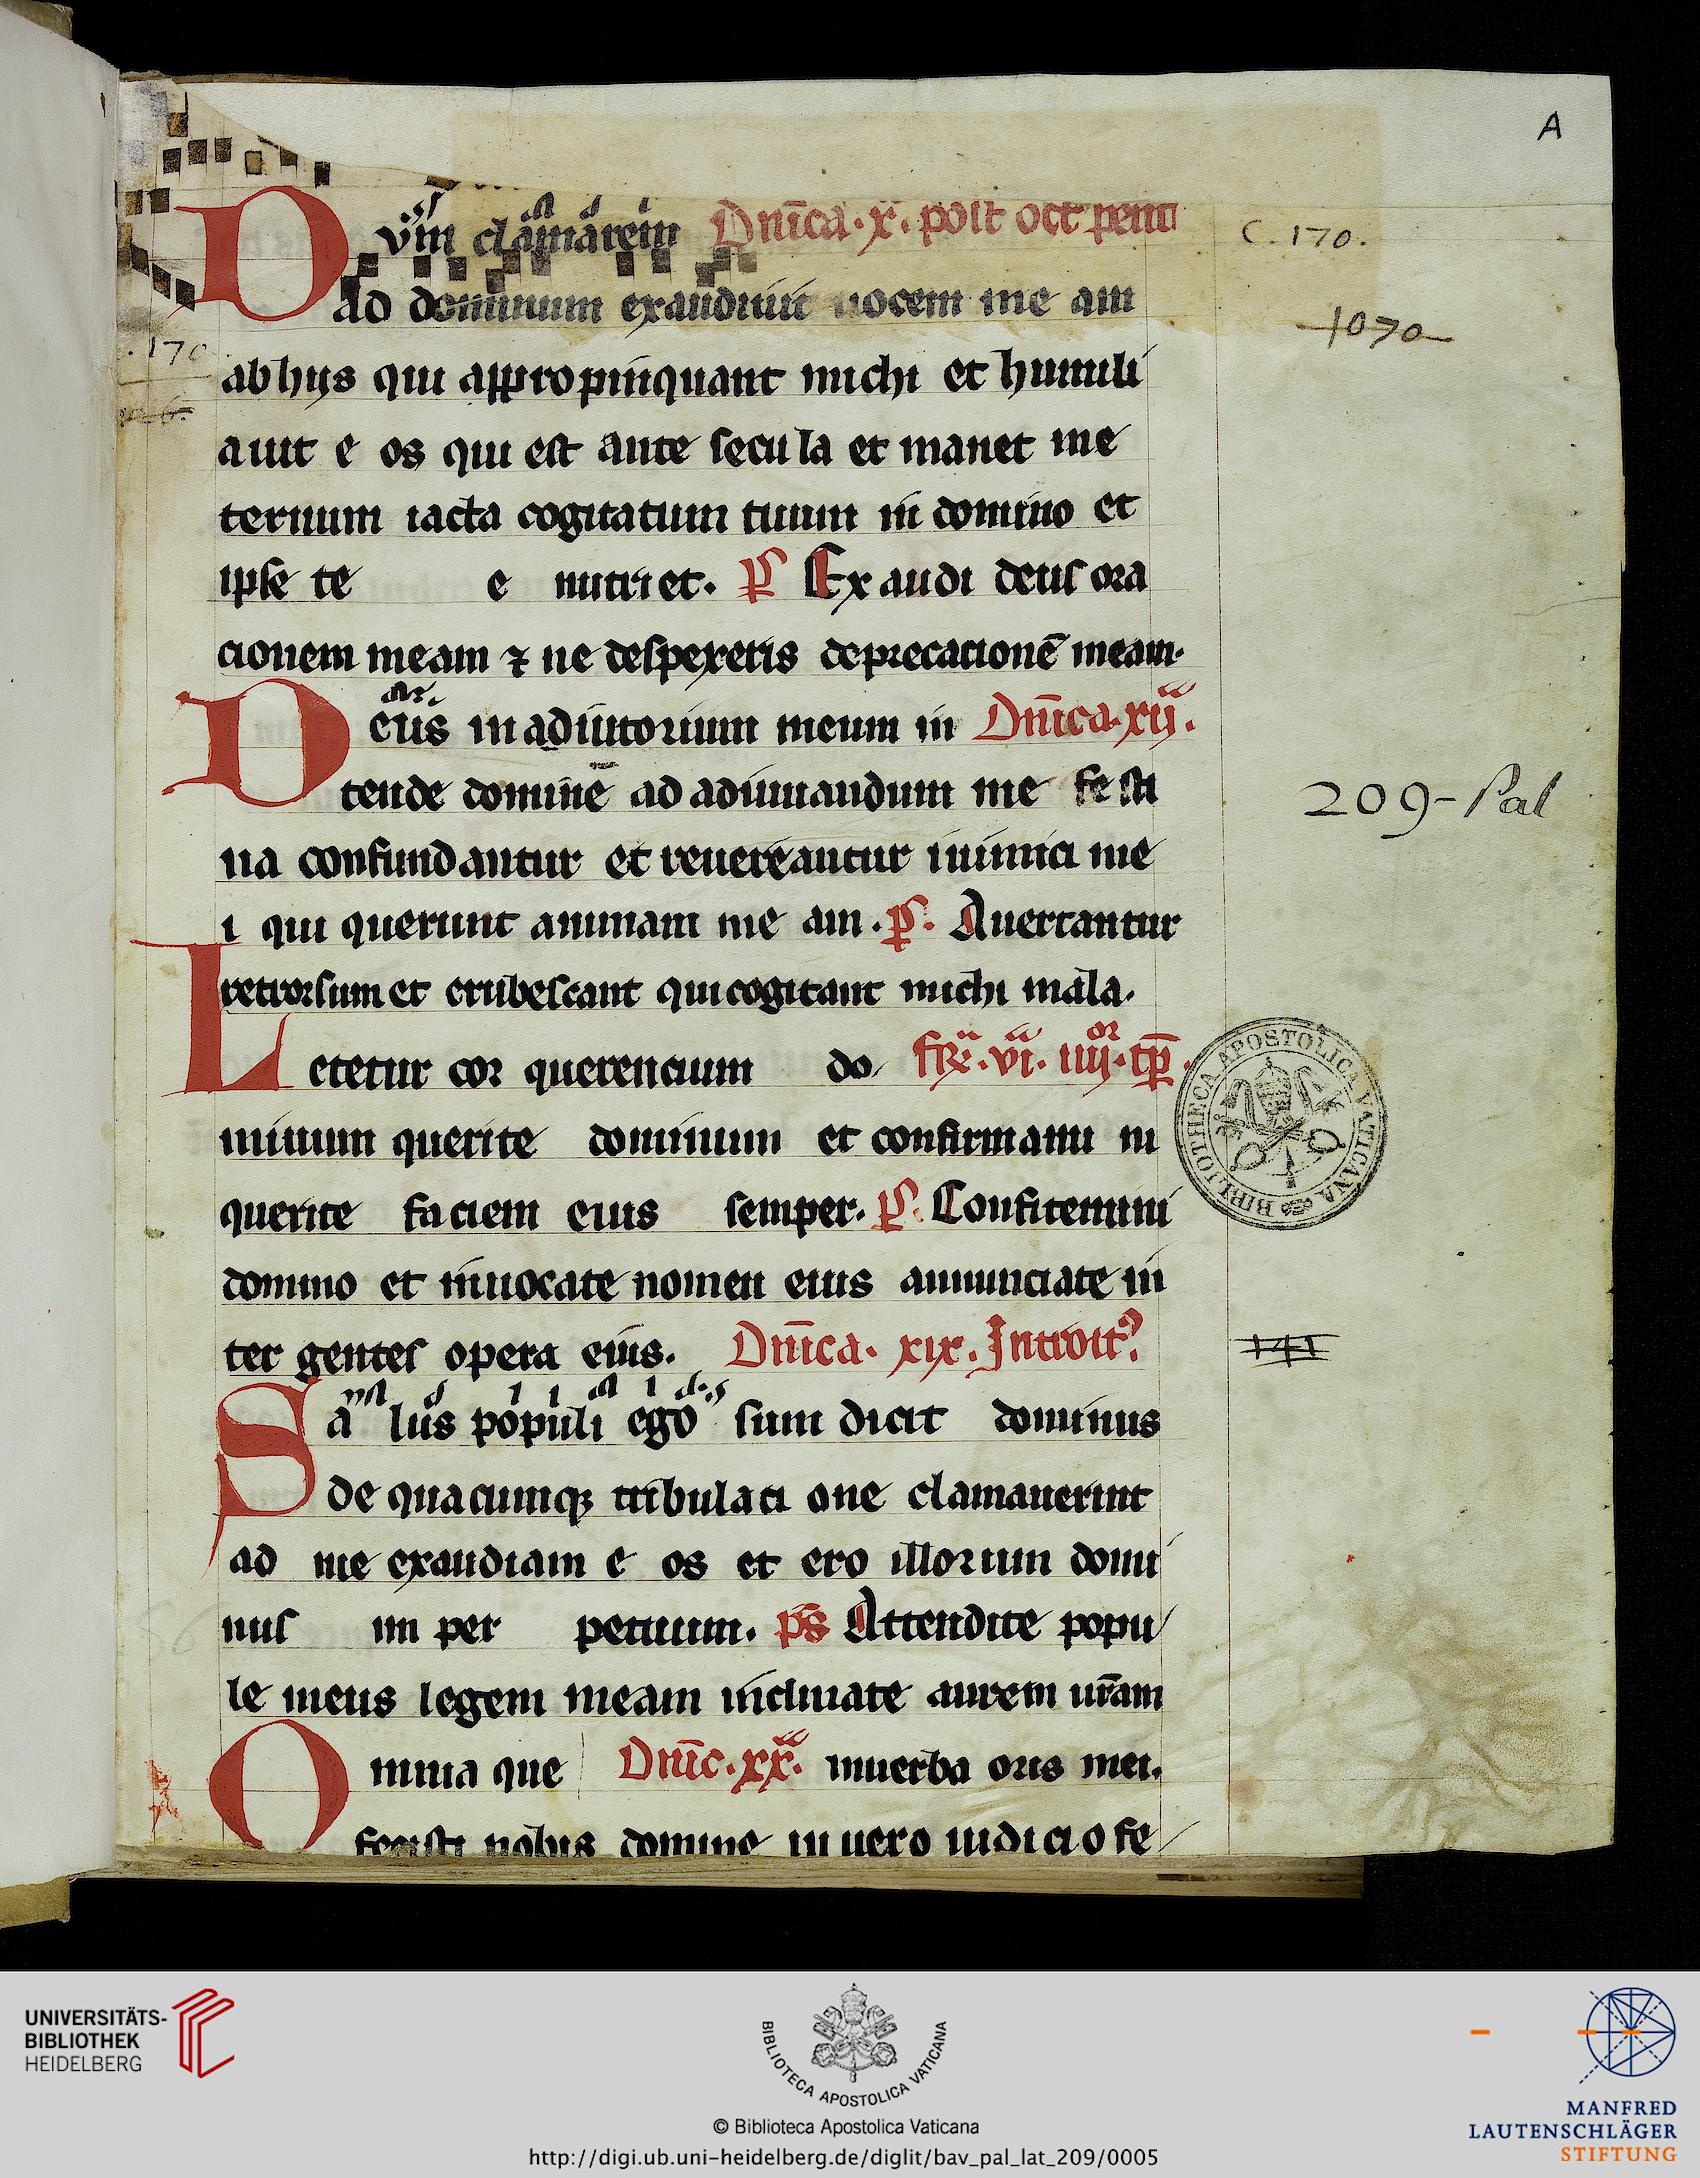 A
Dvm clamarem Dnīca · x · post oct pent
C. 170.
ad dominum exaudiuit uocem me am
1070
170
ab hys qui appropinquant michi et humili
auit e os qui est ante secula et manet me
ternum iacta cogitatum tuum in domino et
ipse te e nutriet. ps Exaudi deus ora
cionem meam ⁊ ne despexeris deprecacionē meam.
Deus in adiutorium meum in Dnīca · xij.
tende domine ad adiuuandum me festi
209-Pal
na confundantur et reuereantur inimici me
i qui querunt animam me am. ps. Auertantur
retrorsum et erubescant qui cogitant michi mala.
Letetur cor querencium do frē · vi · iiij or · tp̄.
minum querite dominum et confirmami ni
querite faciem eius semper. ps. Confitemini
domino et inuocate nomen eius annunciate in
ter gentes opera eius. Dnīca · xix. Introit9
141
Sa lus populi ego sum dicit dominus
de quacumqꝫ tribulaci one clamauerint
ad me exaudiam e os et ero illorum domi
nus im per petuum. ps Attendite popu
le meus legem meam inclinate aurem ur̄am
Omnia que Dnīc · xx. inuerba oris mei.
fecisti nobis domine in uero iudicio fe
BIBLIOTHECA APOSTOLICA VATICANA
UNIVERSITÄTS-
BIBLIOTHEK
HEIDELBERG
BIBLIOTECA APOSTOLICA VATICANA
© Biblioteca Apostolica Vaticana
http://digi.ub.uni-heidelberg.de/diglit/bav_pal_lat_209/0005
MANFRED
LAUTENSCHLÄGER
STIFTUNG